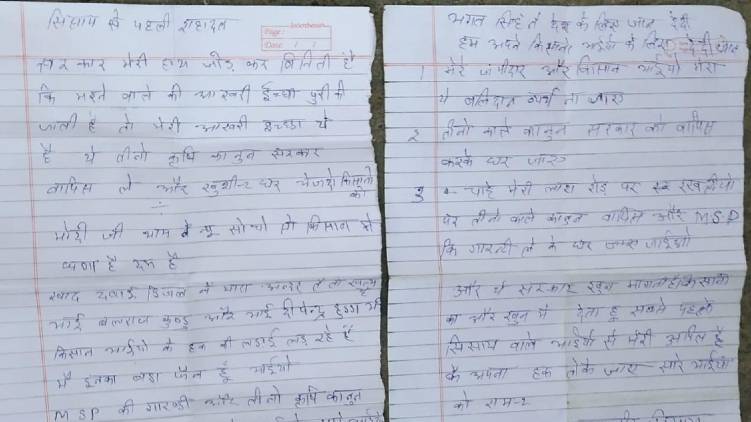 सिसाय से पहली शहादत
Page:
Date: / /
सरकार मेरी हाथ जोड़ कर विनिती है
कि मरने वाले की आखरी ईच्छा पुरी की
जाती है तो मेरी आखरी इच्छा ये
है ये तीनो कृषि कानुन सरकार
वापिस ले और खुशी-२ घर भेजदे किसानो
को
मोदी जी आप ने सोचो तो किसान से
है
खाद दवाई डिजल ने मारा
भाई बलराज कुण्डु और भाई दीपेन्द्र हुड्डा भी
किसान भाईयो के हक की लडाई लड़ रहे है
मै इनका बडा फैन हूँ भाईयो
MSP की गारन्टी और तीनो कृषि कानुन
भगत सिंह ने देश के लिए जान देदी
हम अपने किसान भाईयो के लिए
1 मेरे जमीदार और किसान भाईयो मेरा
ये बलिदान व्यर्थ ना जाए
2 तीनो काले कानुन सरकार को वापिस
करके घर जाए
3 चाहे मेरी लाश रोड पर रख लियो
पर तीनो काले कानुन वापिस और MSP
कि गारन्टी ले के घर जाईयो
और ये सरकार खुन मागती है किसानो
का और खुन मै देता हू सबसे पहले
सिसाय वाले भाईयो से मेरी अपिल है
के अपना हक लेके जाए सारे भाईयो
को राम-२